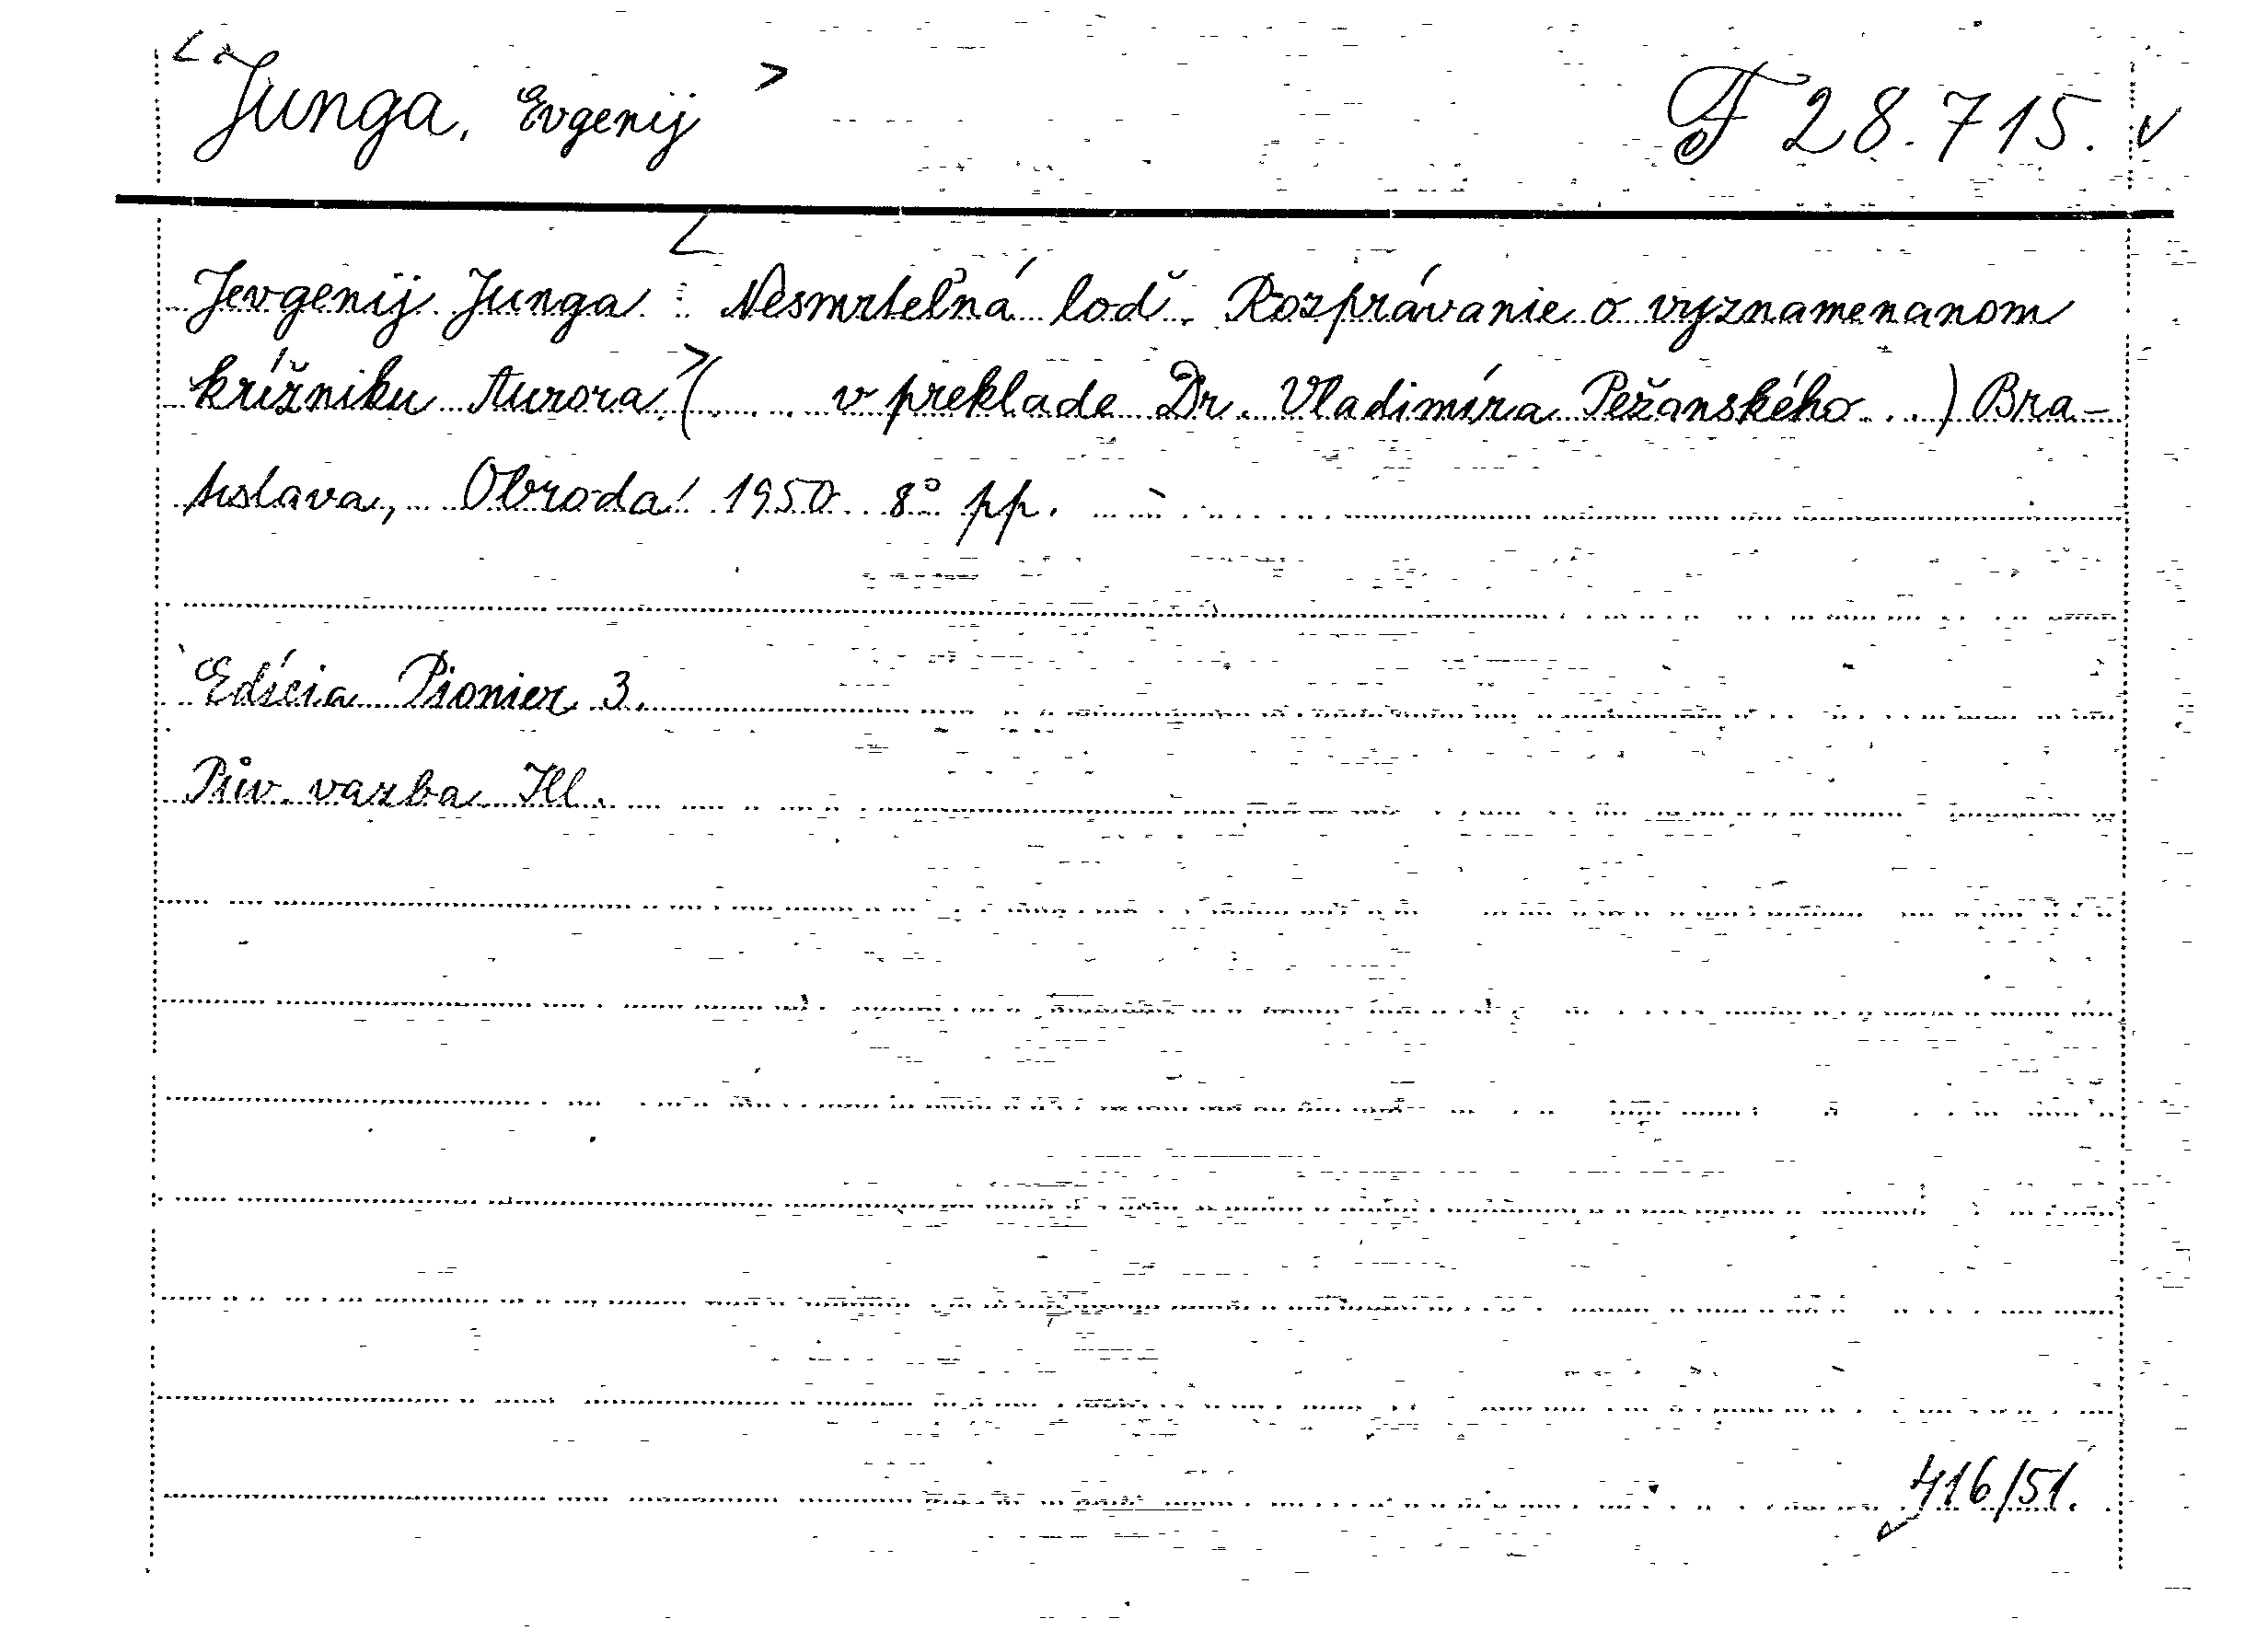 <Junga, Evgenij> F 28.715. v
Jevgenij Junga : <Nesmrteľná loď. Rozprávanie o vyznamenanom
krížniku Aurora.> (... v preklade Dr. Vladimíra Pežanského...) Bra-
tislava, Obroda 1950 8° pp.
Edícia Pionier 3.
Pův. vazba Ill.
416/51.